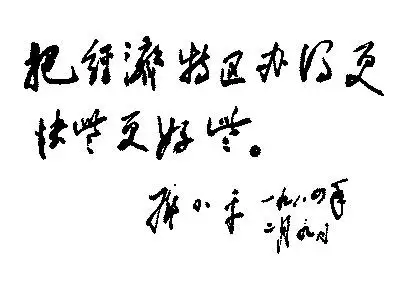 把经濟特区办得更
快些更好些。
邓小平 一九八四年
二月九日